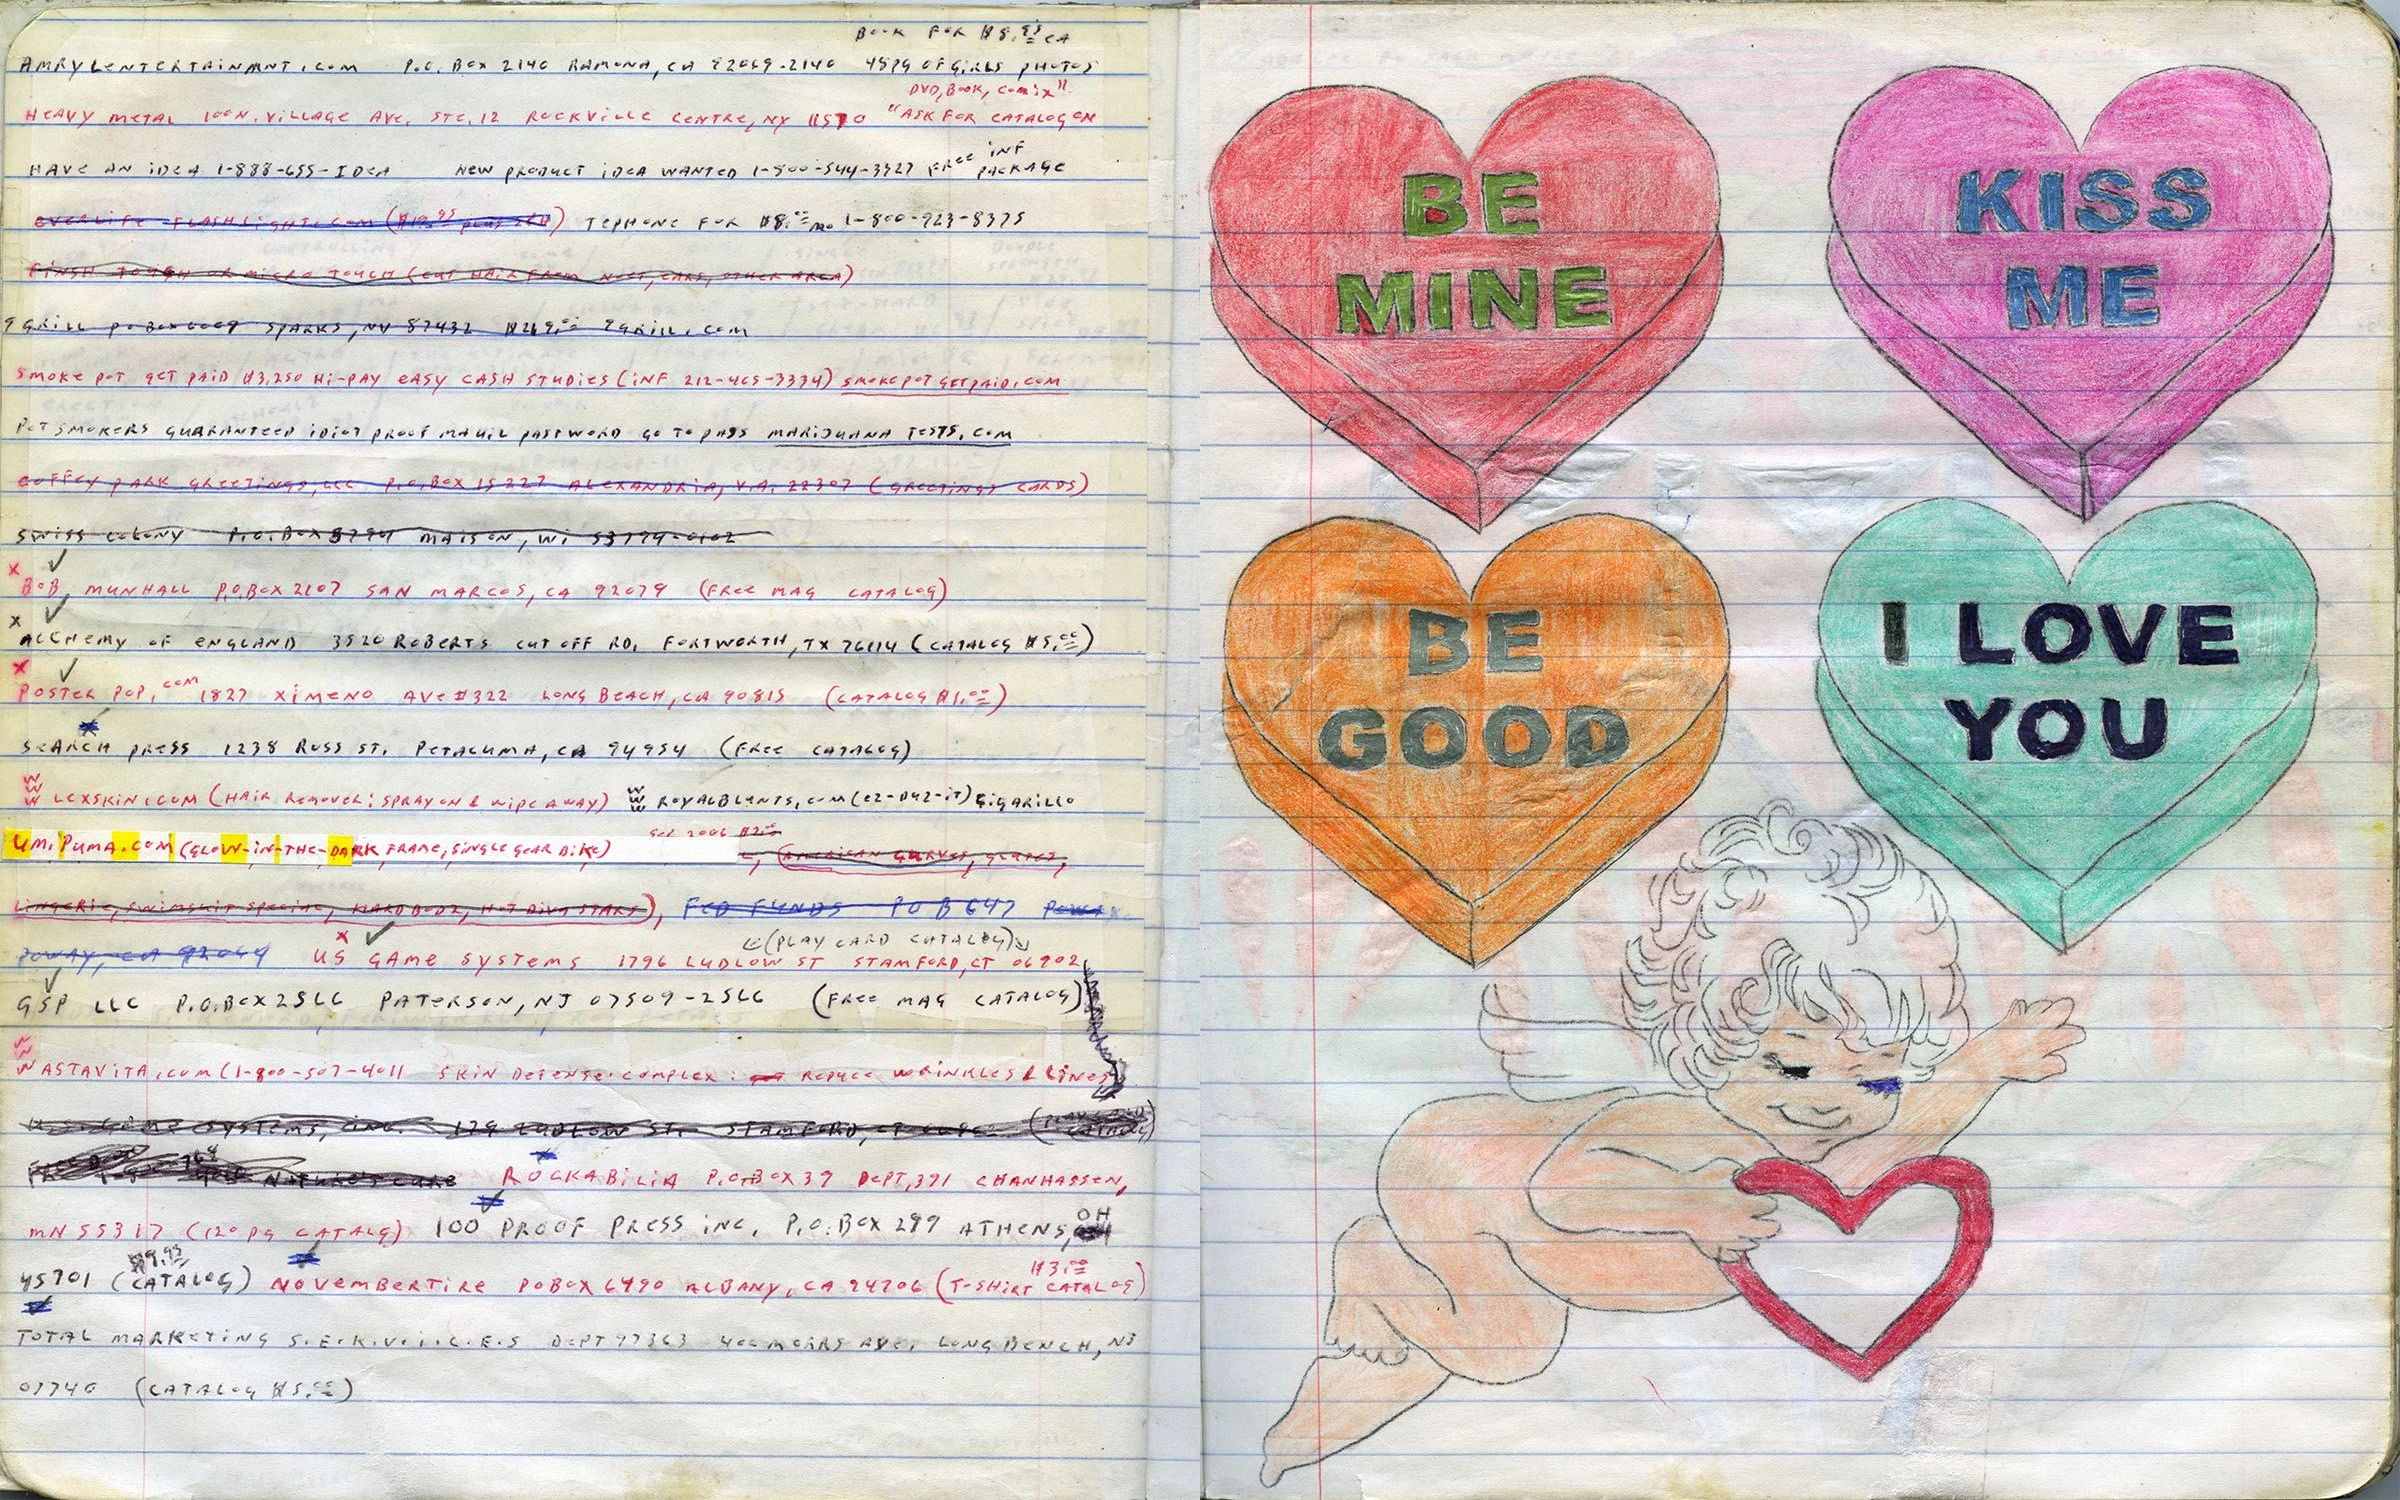 BOOK FOR $8.95 CA
AMRYLENTERTAINMNT.COM P.O. BOX 2140 RAMONA, CA 92069-2140 48PG OF GIRLS PHOTOS
DVD, BOOK, COMIX"
HEAVY METAL 100N. VILLAGE AVE. STE. 12 ROCKVILLE CENTRE, NY 11570 "ASK FOR CATALOG ON
HAVE AN IDEA 1-888-655-IDEA NEW PRODUCT IDEA WANTED 1-800-544-3327 FREE INF PACKAGE
EVERLIFE-FLASHLIGHT.COM ($19.95 PLUS S&H) TEPHONE FOR $8.00 MO 1-800-923-8375
FINSH TOUGH OR MICRO TOUCH (CUT HAIR FROM NOSE, EARS, OTHER AREA)
GRILL P O BOX 6009 SPARKS, NV 87432
SMOKE POT GET PAID $3,250 HI-PAY EASY CASH STUDIES (INF 212-465-3334) SMOKEPOTGETPAID.COM
POT SMOKERS GUARANTEED IDIOT PROOF PASSWORD GO TO PASS MARIJUANA TESTS.COM
COFFEY PARK GREETINGS, LLC P.O. BOX 15227 ALEXANDRIA, V.A. 22307 (GREETINGS CARDS)
SWISS COLONY P.O. BOX MAISON, WI 53794-0102
X BOB MUNHALL P.O. BOX 2107 SAN MARCOS, CA 92079 (FREE MAG CATALOG)
X ALCHEMY OF ENGLAND 3520 ROBERTS CUT OFF RD, FORTWORTH, TX 76114 (CATALOG $5.00)
X POSTER POP.COM 1827 XIMENO AVE #322 LONG BEACH, CA 90815 (CATALOG $1.00)
SEARCH PRESS 1238 ROSS ST. PETALUMA, CA 94954 (FREE CATALOG)
WWW LEXSKIN.COM (HAIR REMOVER: SPRAY ON & WIPE AWAY) WWW ROYALBLUNTS.COM (EZ-DUZ-IT) CIGARILLO
UMIPUMA.COM (GLOW-IN-THE-DARK FRAME, SINGLE GEAR BIKE) 2006 (AMERICAN CURVES,
LINGERIE, SWIMSUIT SPECIAL, HARDBODZ, HOT DIVA STARS), FED FUNDS P O B 647
POWAY, CA 92064 X US GAME SYSTEMS 1796 LUDLOW ST STAMFORD, CT 06902 (PLAY CARD CATALOG)
GSP LLC P.O. BOX 2566 PATERSON, NJ 07509-2566 (FREE MAG CATALOG)
WWW ASTAVITA.COM (1-800-507-4011 SKIN DEFENSE COMPLEX: REDUCE WRINKLES & LINES)
GAME SYSTEMS, INC. 179 LUDLOW ST. STAMFORD, CT (PLAY CARD CATALOG)
NATURE'S CURE ROCKABILIA P.O. BOX 39 DEPT. 391 CHANHASSEN,
MN 55317 (120 PG CATALG) 100 PROOF PRESS INC. P.O. BOX 299 ATHENS, OH
45701 (CATALOG) $9.95 NOVEMBERTIRE PO BOX 6490 ALBANY, CA 94706 ($3.00 T-SHIRT CATALOG)
TOTAL MARKETING DEPT LONG BENCH, NJ
07740 (CATALOG $5.00)
BE
MINE
KISS
ME
BE
GOOD
I LOVE
YOU